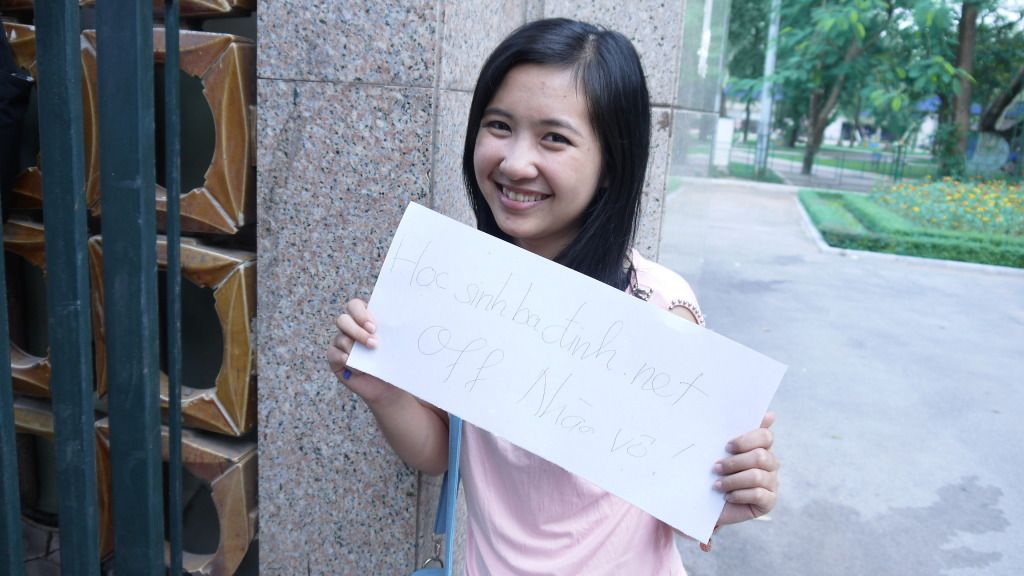 Học sinh bactinh.net
Off Nhào vô!